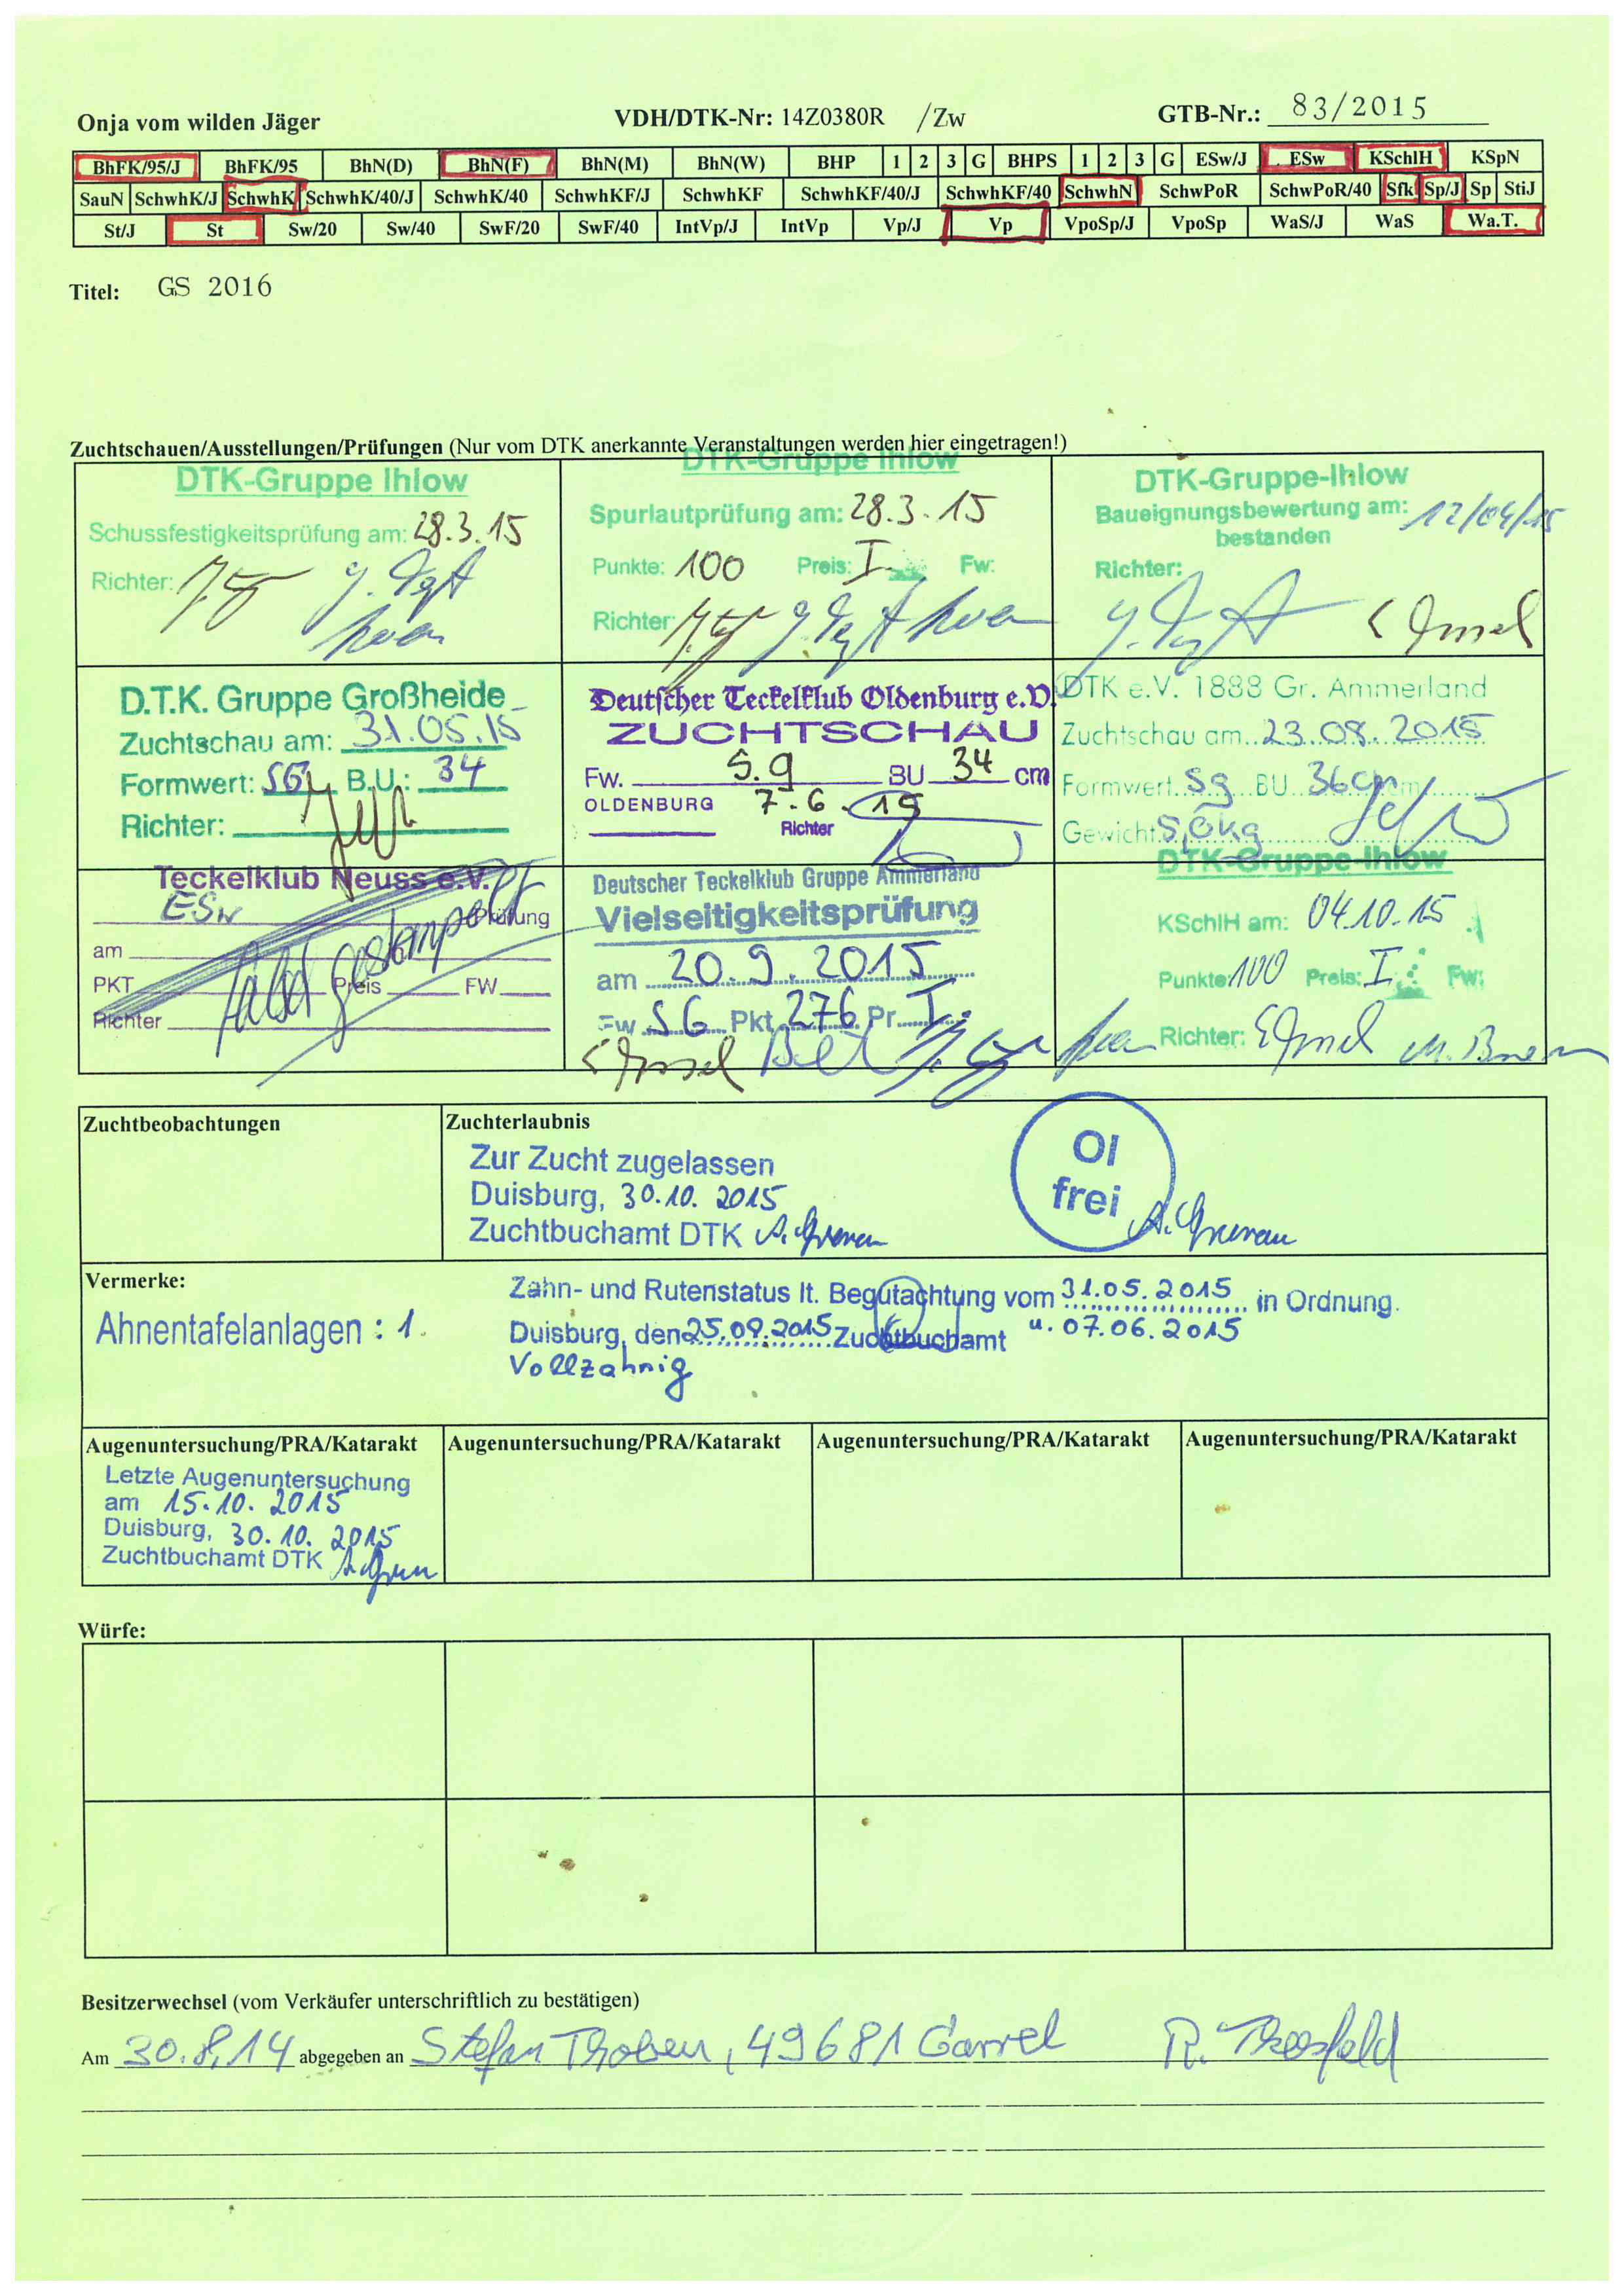 Onja vom wilden Jäger VDH/DTK-Nr: 14Z0380R /Zw GTB-Nr.: 83/2015
BhFK/95/J BhFK/95 BhN(D) BhN(F) BhN(M) BhN(W) BHP 1 2 3 G BHPS 1 2 3 G ESw/J ESw KSchlH KSpN
SauN SchwhK/J SchwhK SchwhK/40/J SchwhK/40 SchwhKF/J SchwhKF SchwhKF/40/J SchwhKF/40 SchwhN SchwPoR SchwPoR/40 Sfk Sp/J Sp StiJ
St/J St Sw/20 Sw/40 SwF/20 SwF/40 IntVp/J IntVp Vp/J Vp VpoSp/J VpoSp WaS/J WaS Wa.T.
Titel: GS 2016
Zuchtschauen/Ausstellungen/Prüfungen (Nur vom DTK anerkannte Veranstaltungen werden hier eingetragen!)
DTK-Gruppe Ihlow
Schussfestigkeitsprüfung am: 28.3.15
Richter:
DTK-Gruppe Ihlow
Spurlautprüfung am: 28.3.15
Punkte: 100 Preis: I. Fw:
Richter:
DTK-Gruppe-Ihlow
Baueignungsbewertung am: 12/04/15
bestanden
Richter:
D.T.K. Gruppe Großheide
Zuchtschau am: 31.05.15
Formwert: SG B.U.: 34
Richter:
Deutscher Teckelklub Oldenburg e.V.
ZUCHTSCHAU
Fw. S.g BU 34 cm
OLDENBURG 7.6.15
Richter
DTK e.V. 1888 Gr. Ammerland
Zuchtschau am 23.08.2015
Formwert Sg BU 36cm
Gewicht
Teckelklub Neuss e.V.
ESw Prüfung
am
PKT Preis FW
Richter
Deutscher Teckelklub Gruppe Ammerland
Vielseitigkeitsprüfung
am 20.9.2015
Fw SG Pkt 276 Pr. I.
DTK-Gruppe-Ihlow
KSchlH am: 04.10.15
Punkte: 100 Preis: I. Fw:
Richter:
Zuchtbeobachtungen
Zuchterlaubnis
Zur Zucht zugelassen
Duisburg, 30.10.2015
Zuchtbuchamt DTK
OI
frei
Vermerke:
Ahnentafelanlagen : 1.
Zahn- und Rutenstatus lt. Begutachtung vom 31.05.2015 in Ordnung.
Duisburg, den 25.09.2015 Zuchtbuchamt u. 07.06.2015
Vollzahnig
Augenuntersuchung/PRA/Katarakt Augenuntersuchung/PRA/Katarakt Augenuntersuchung/PRA/Katarakt Augenuntersuchung/PRA/Katarakt
Letzte Augenuntersuchung
am 15.10.2015
Duisburg, 30.10.2015
Zuchtbuchamt DTK
Würfe:
Besitzerwechsel (vom Verkäufer unterschriftlich zu bestätigen)
Am 30.8.14 abgegeben an Stefan Thoben, 49681 Garrel